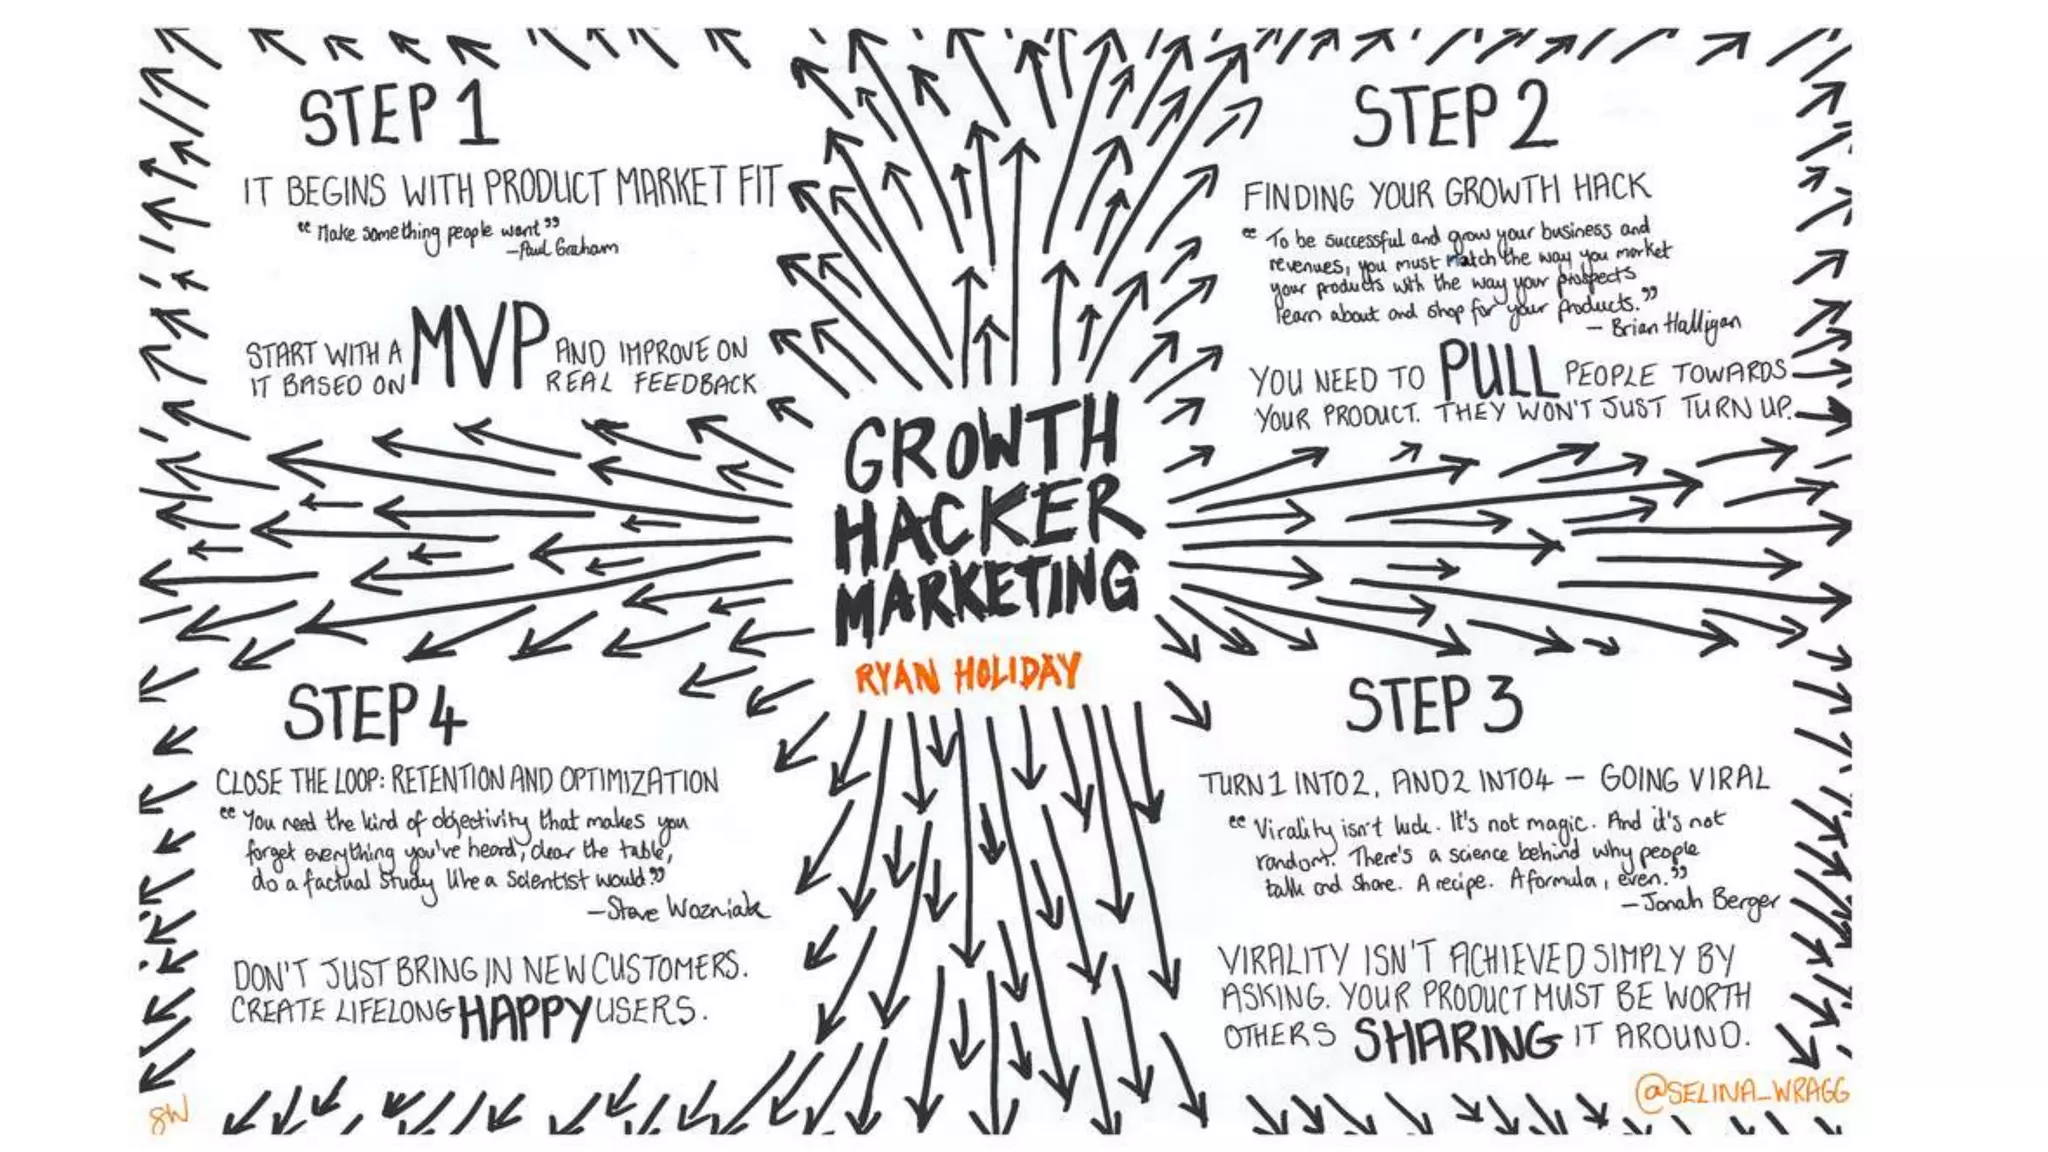 STEP 1
IT BEGINS WITH PRODUCT MARKET FIT
"Make something people want"
—Paul Graham
START WITH A MVP AND IMPROVE ON
IT BASED ON REAL FEEDBACK
STEP 2
FINDING YOUR GROWTH HACK
"To be successful and grow your business and
revenues, you must match the way you market
your products with the way your prospects
learn about and shop for your products."
— Brian Halligan
YOU NEED TO PULL PEOPLE TOWARDS
YOUR PRODUCT. THEY WON'T JUST TURN UP.
GROWTH
HACKER
MARKETING
RYAN HOLIDAY
STEP 3
TURN 1 INTO 2, AND 2 INTO 4 — GOING VIRAL
"Virality isn't luck. It's not magic. And it's not
random. There's a science behind why people
talk and share. A recipe. A formula, even."
—Jonah Berger
VIRALITY ISN'T ACHIEVED SIMPLY BY
ASKING. YOUR PRODUCT MUST BE WORTH
OTHERS SHARING IT AROUND.
STEP 4
CLOSE THE LOOP: RETENTION AND OPTIMIZATION
"You need the kind of objectivity that makes you
forget everything you've heard, clear the table,
do a factual study like a scientist would."
—Steve Wozniak
DON'T JUST BRING IN NEW CUSTOMERS.
CREATE LIFELONG HAPPY USERS.
SW
@SELINA_WRAGG